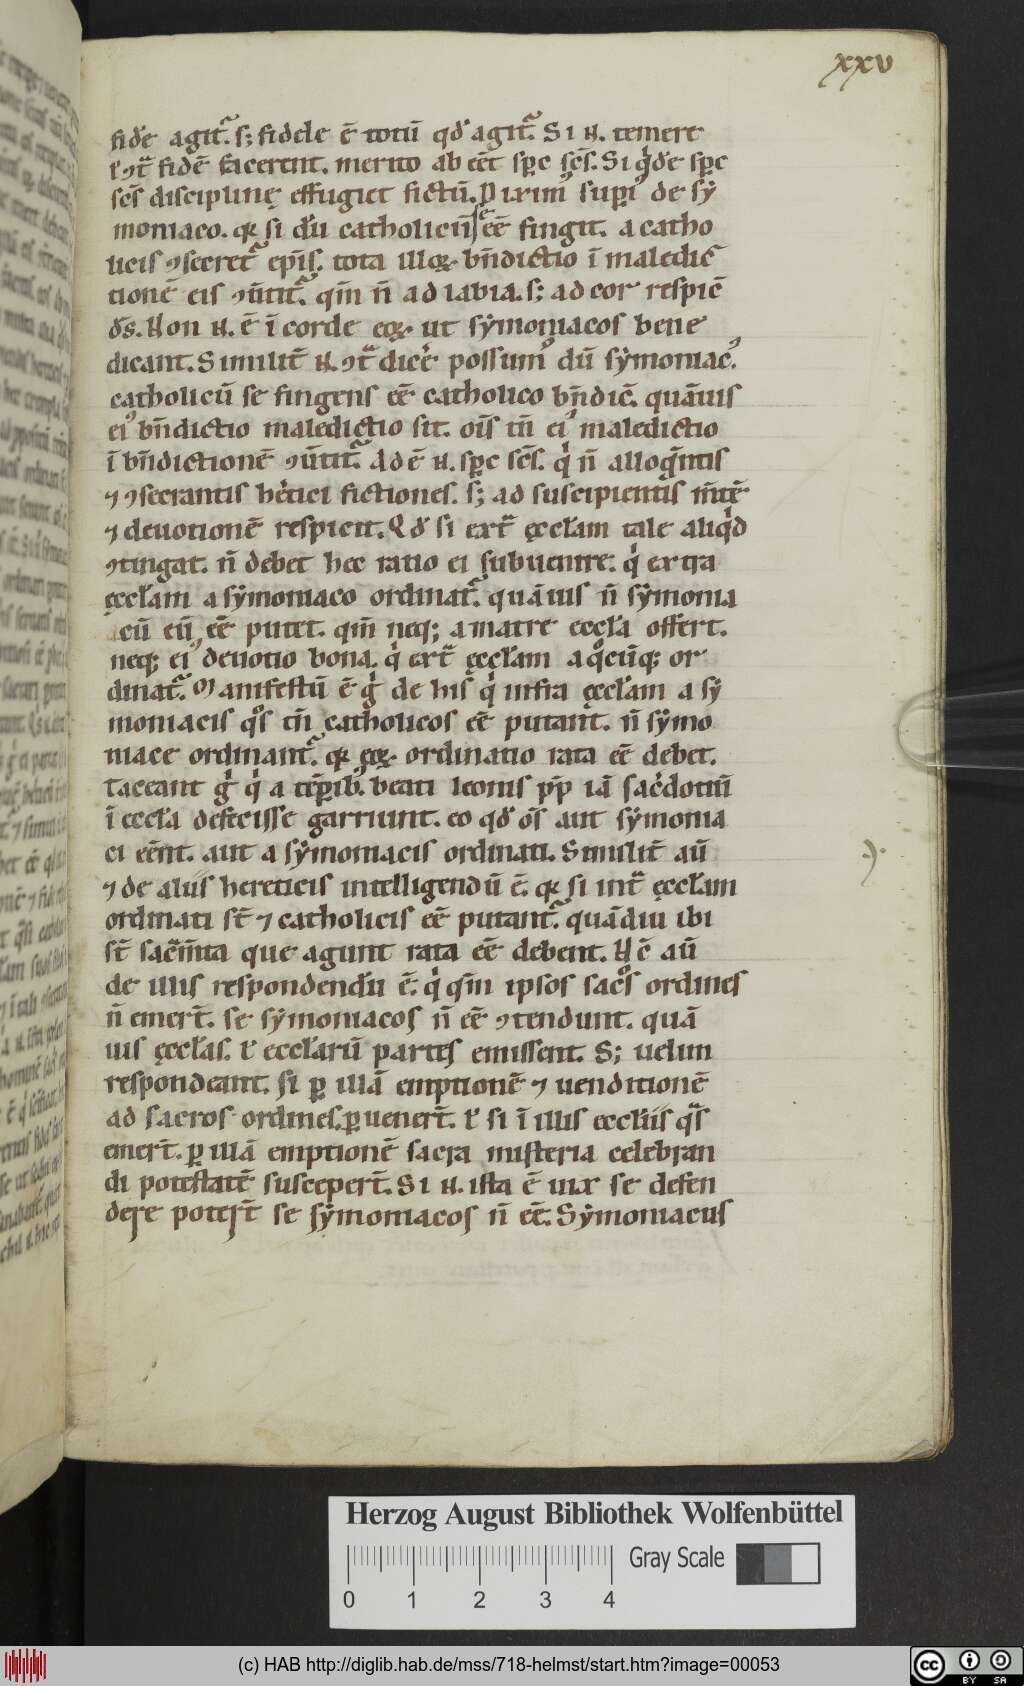 xxv
fide agit᷑. s; fidele ē totū qđ agit᷑. Si n̄. temere
ł ꝯt᷑ fidē facerent. merito ab eēt sp̄c sc̄s. Si q͛de sp̄c
sc̄s disciplinę effugiet fictū. Dixim᷒ supi᷒ de sy
moniaco. qꝛ si dū catholicū se eē fingit. a catho
licis ꝯsecret᷑ ep̄is. tota illiꝰ bn̄dictio ī maledic
tionē eis ꝯūtit᷑. qm̄ n̄ ad labia. s; ad cor respic̄
d̄s. Non n̄. ē ī corde eoꝝ ut symoniacos bene
dicant. Similit̄ n̄. ꝯt᷑ dicē possum᷒ dū symoniac᷒
catholicū se fingens eē catholico bn̄dic̄. quāuis
ei᷒ bn̄dictio maledictio sit. oīs tn̄ ei᷒ maledictio
ī bn̄dictionē ꝯūtit᷑. Adē n̄. sp̄c sc̄s. qͥ n̄ alloq̄ntis
⁊ ꝯsecrantis hetici fictiones. s; ad suscipientis m̄tē
⁊ deuotionē respicit. Qđ si ext᷑ ęccłam tale aliqͥd
ꝯtingat. n̄ debet hec ratio ei subuenire. qͥ extra
ęccłam a symoniaco ordinat᷑. quāuis n̄ symonia
cū eū eē putet. qm̄ neq; a matre eccła offert.
neq; ei᷒ deuotio bona. qͥ ext᷑ ęccłam a qͦcūq; or
dinat᷑. Manifestū ē gͥ de his qͥ infra ęccłam a sy
moniacis qͦs tn̄ catholicos eē putant. n̄ symo
niace ordinant᷑. qꝛ eoꝝ ordinatio rata eē debet.
Taceant gͥ qͥ a tēporib᷒ beati leonis pp̄ iā sac͛dotiū
ī eccła defecisse garriunt. eo qđ os̄ aut symonia
ci eēnt. aut a symoniacis ordinati. Similit̄ aū
⁊ de aliis hereticis intelligendū ē. qꝛ si int᷑ ęccłam
ordinati st̄ ⁊ catholicis eē putant᷑. quādiu ibi
st̄ sac̄m̄ta que agunt rata eē debent. Nē aū
de illis respondendū ē. qͥ qm̄ ipsos sacͦs ordines
n̄ emert̄. se symoniacos n̄ eē ꝯtendunt. quā
uis ęccłas. ł eccłarū partes emissent. S; uelim
respondeant. si ꝑ illā emptionē ⁊ uenditionē
ad sacros ordines ꝑuenert̄. ł si ī illis eccłiis qͣs
emert̄. ꝑ illā emptionē sacra misteria celebran
di potestatē suscepert̄. Si n̄. ista ē uix se defen
dere poterīt se symoniacos n̄ eē. Symoniacus
Herzog August Bibliothek Wolfenbüttel
Gray Scale
0 1 2 3 4
(c) HAB http://diglib.hab.de/mss/718-helmst/start.htm?image=00053
cc BY SA